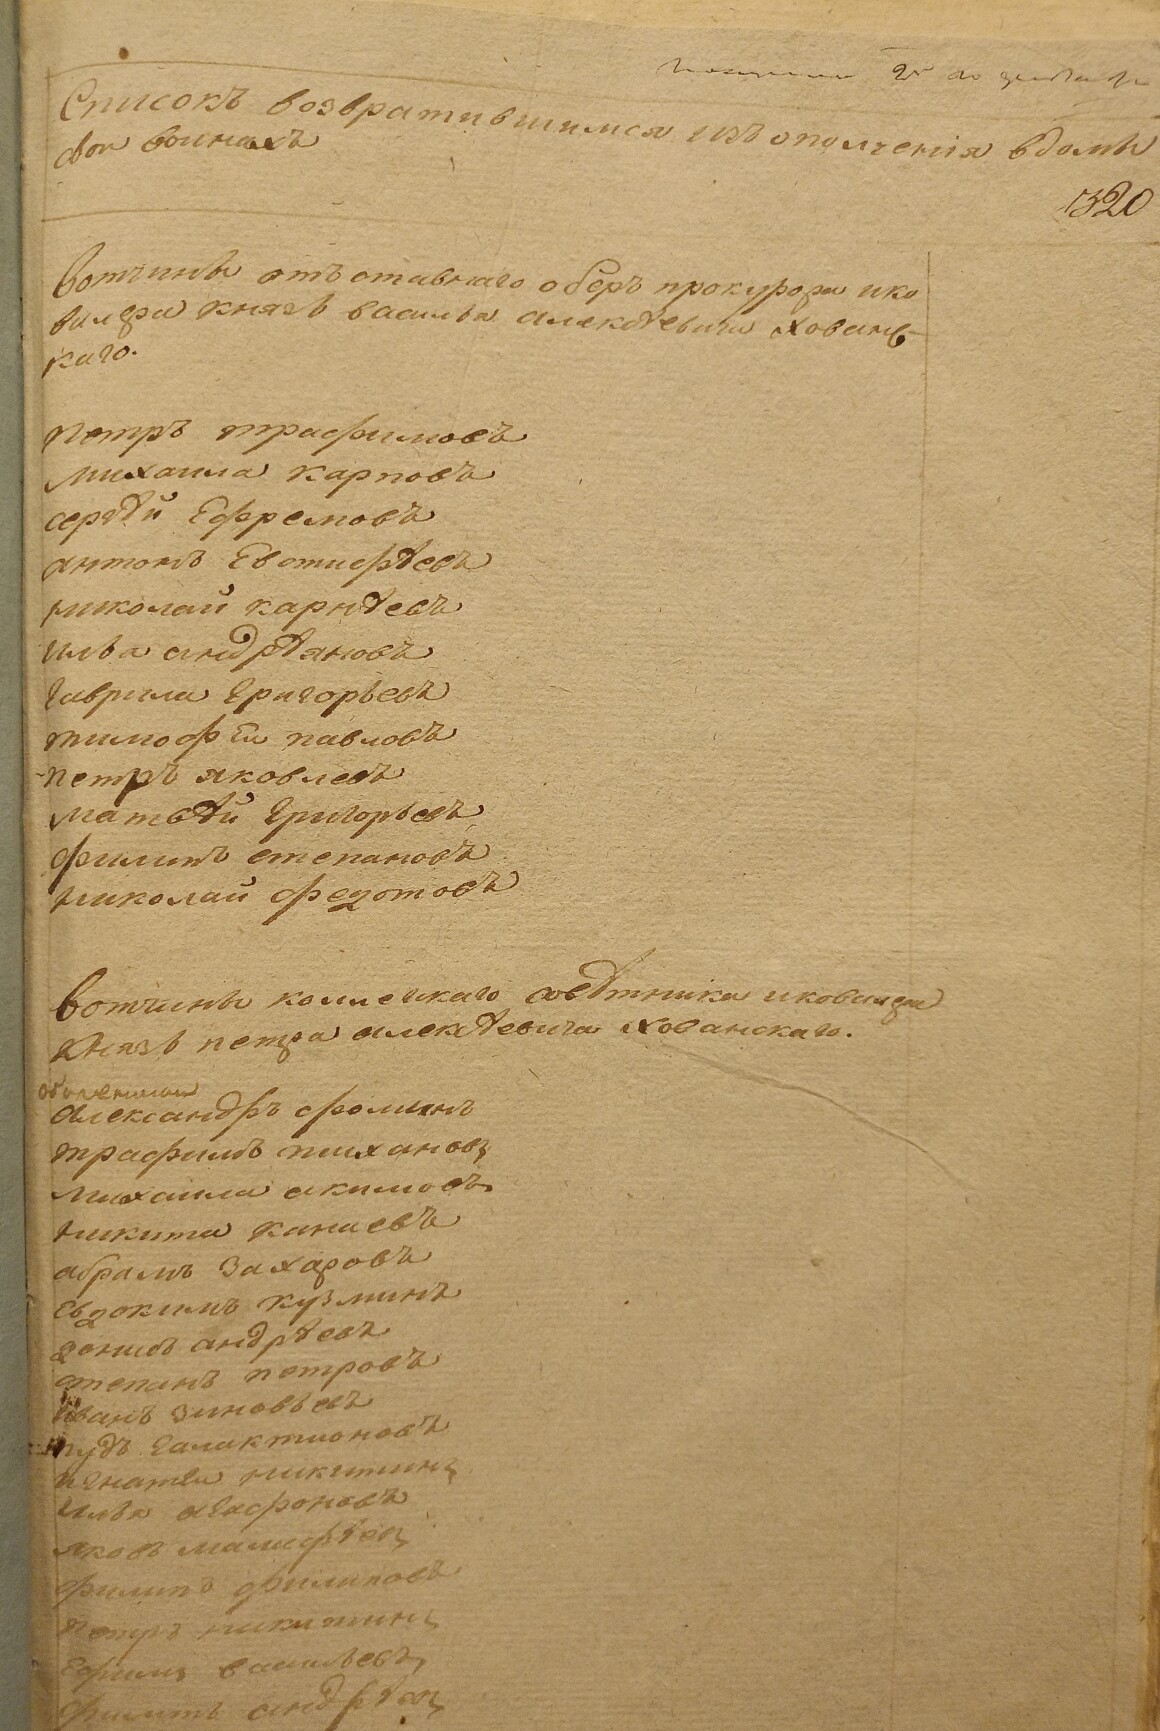 Списокъ возвратившимся изъ ополченія вдомы
свои воинахъ
320
Вотчины отъ отставнаго оберъ прокурора ика
валера князь василья алексѣевича хованс
каго.
петръ трафимовъ
михаила карповъ
сергѣй Ефремовъ
антонъ Евстифѣевъ
николай карнѣевъ
илья андрѣяновъ
гаврила григорьевъ
тимофѣй павловъ
петръ яковлевъ
матвѣй григорьевъ
филипъ степановъ
николай федотовъ
Вотчины коллежкаго совѣтника икавалера
князь петра алексѣевича хованскаго.
александръ фоминъ
трафимъ тихановъ
михаила акимовъ
никита канаевъ
абрамъ захаровъ
Евдокимъ кузминъ
денисъ андрѣевъ
степанъ петровъ
иванъ зиновьевъ
пудъ галактионовъ
игнатей никитинъ
илья агафоновъ
яковъ малафѣевъ
филипъ филиповъ
петръ никитинъ
Ефимъ васильевъ
филипъ андрѣевъ